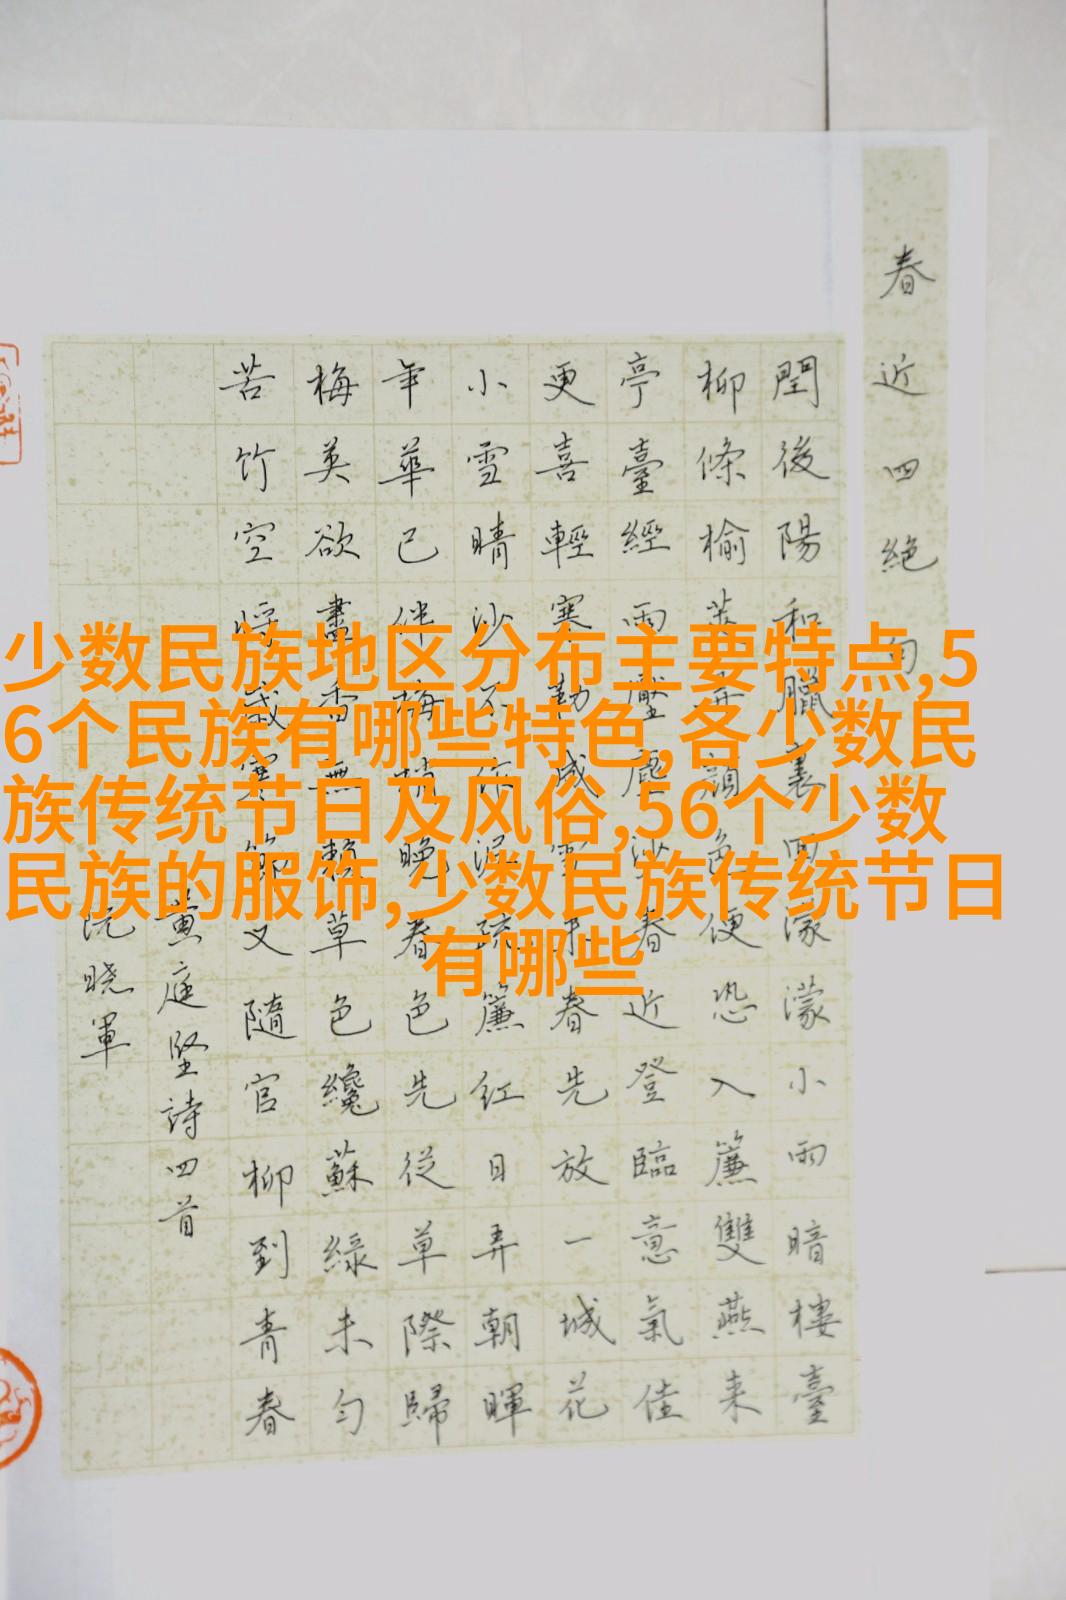 春近四絕句
閏後陽和臘裏回濛濛小雨暗樓臺
柳條榆莢弄顏色便恐入簾雙燕来
亭臺經雨壓塵沙春近登臨意氣佳
更喜輕寒勒成雪未春先放一城花
小雪晴沙不作泥疏簾紅日弄朝暉
年華已伴梅梢晚春色先從草際歸
梅英欲盡香無賴草色纔蘇綠未勻
苦竹空將歲寒節又隨官柳到青春
黄庭坚詩四首
阮晓軍
少数民族地区分布主要特点,5
6个民族有哪些特色,各少数民
族传统节日及风俗,56个少数
民族的服饰,少数民族传统节日
有哪些